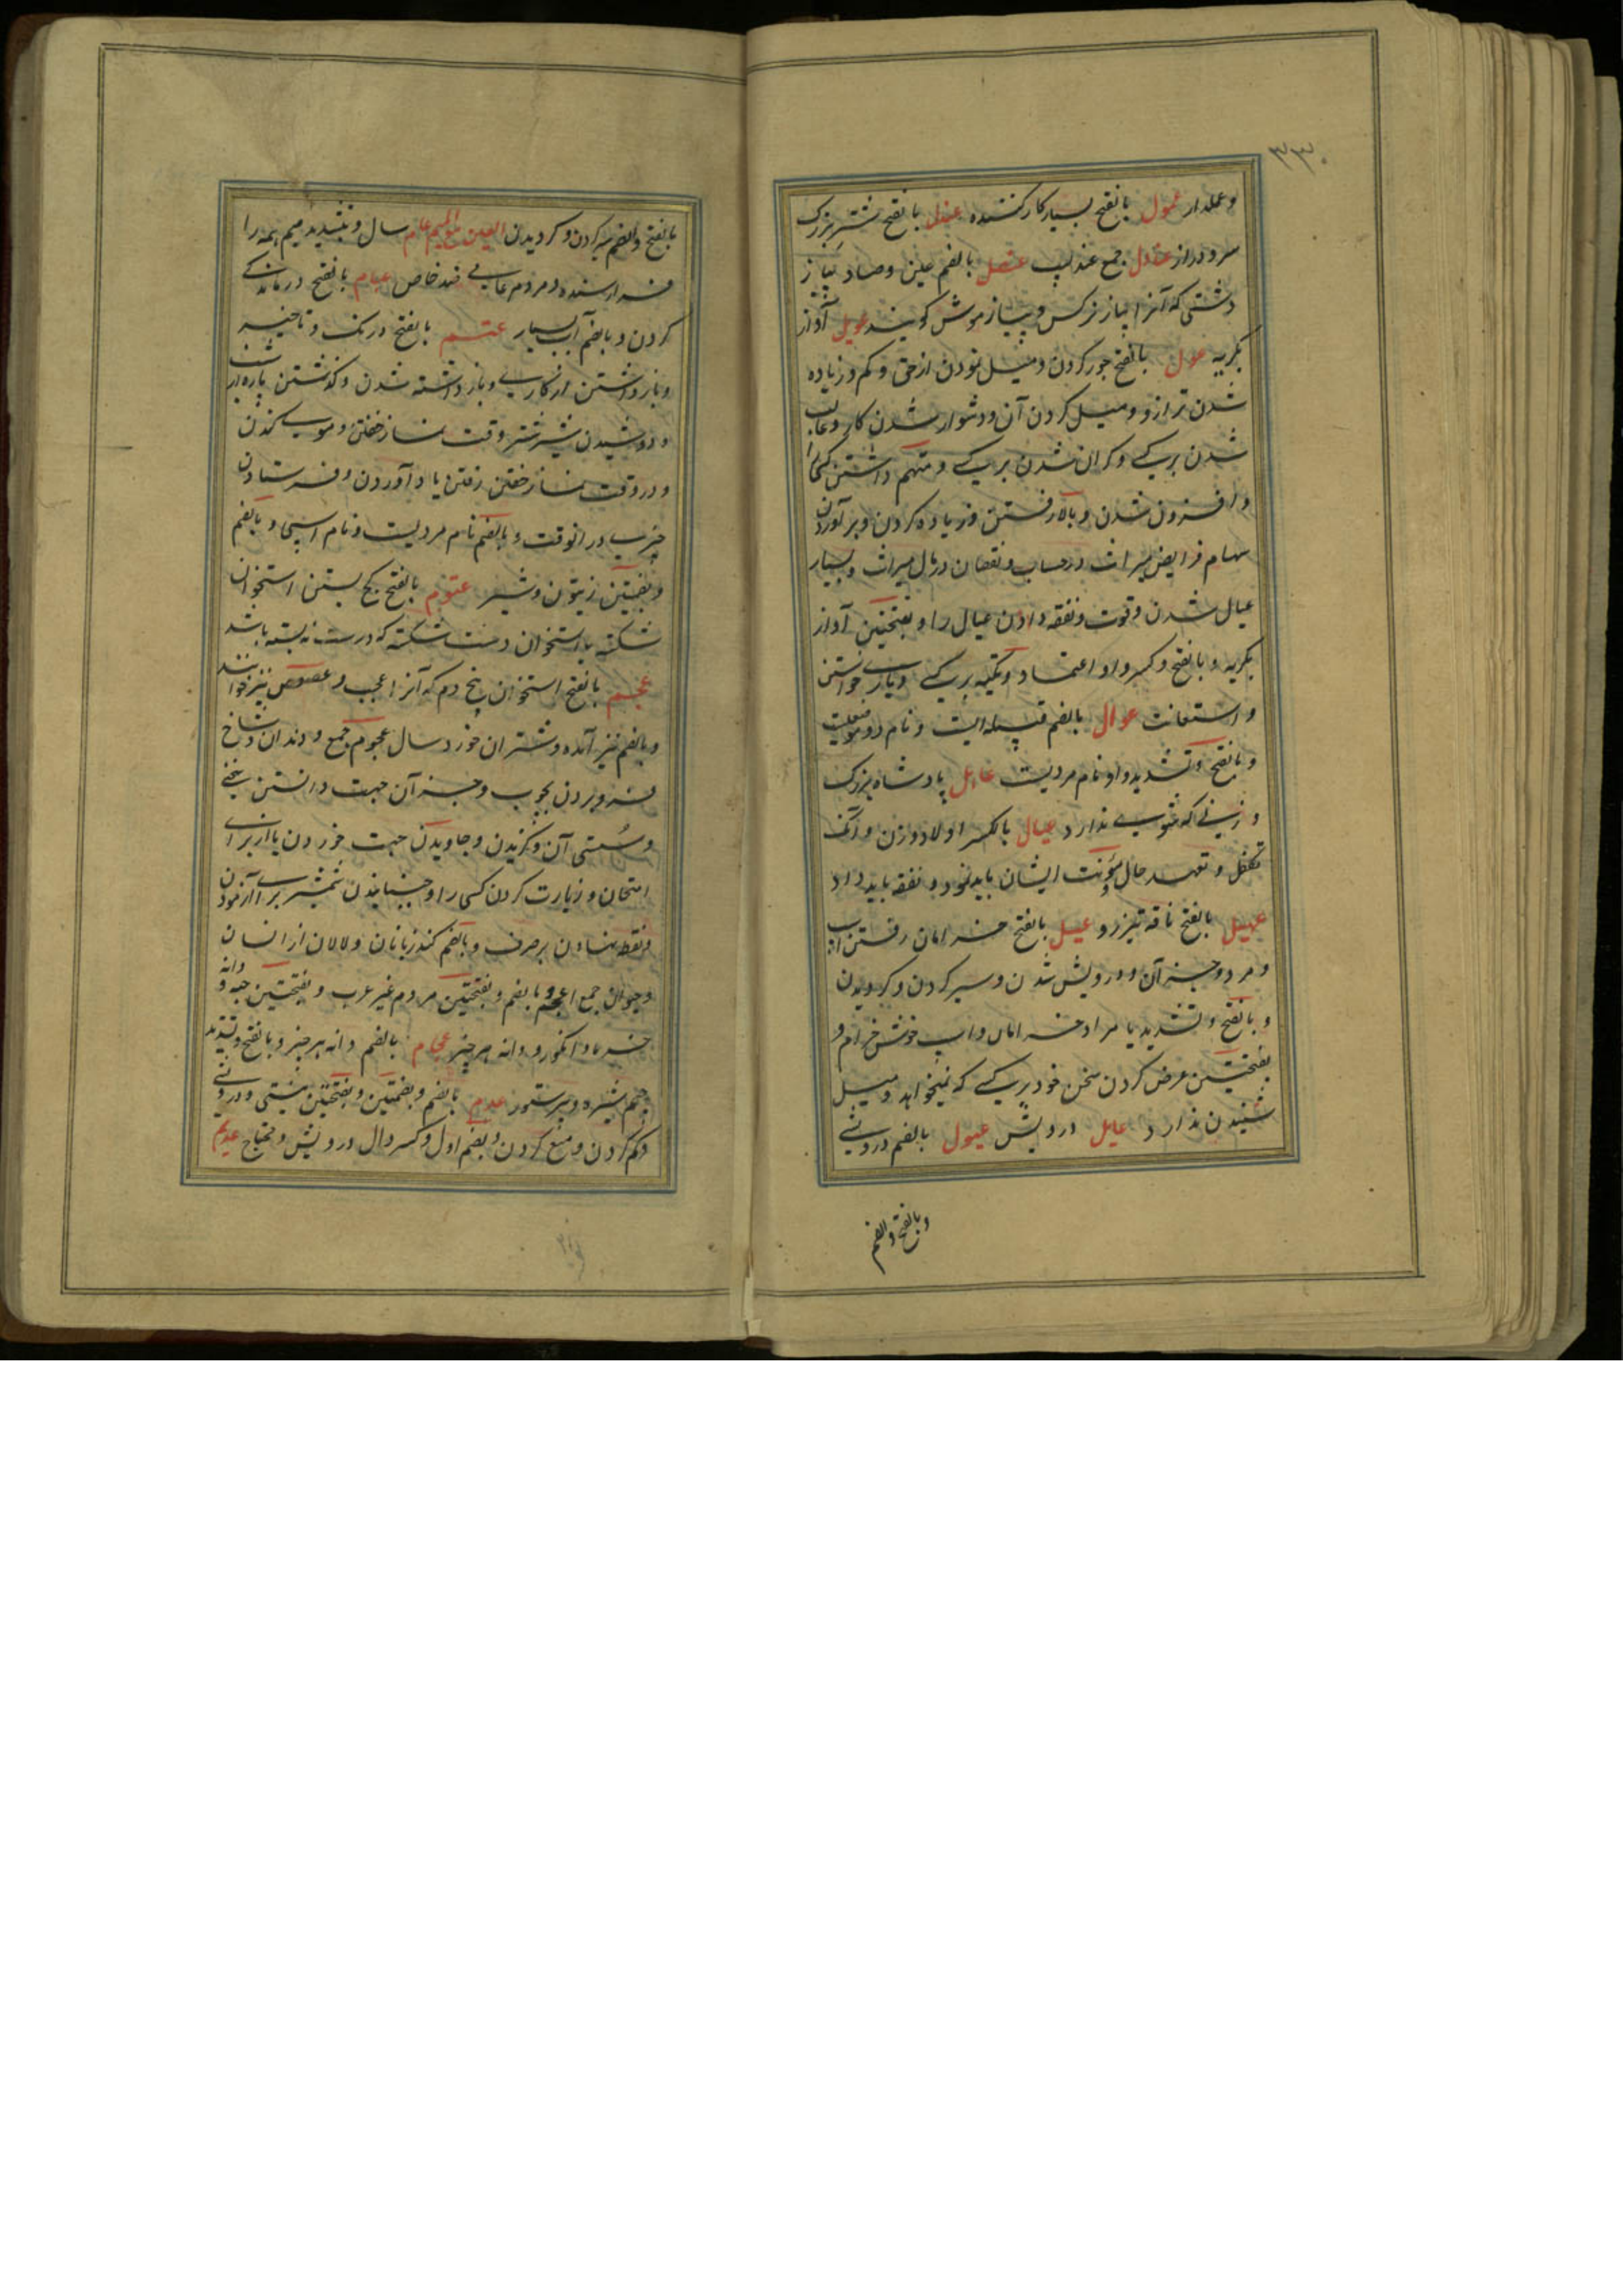 ۳۳۰
و عملدار عمول بالفتح بسیار کار کننده عندل بالفتح شتر بزرک
سر و دراز عنادل جمع عندلیب عنصل بالضم عین و صاد پیاز
دشتی که آنرا پیاز نرکس و پیاز موش کویند عویل آواز
بکریه عول بالفتح جور کردن و میل نمودن از حق و کم و زیاده
شدن ترازو و میل کردن آن و دشوار شدن کار و غالب
شدن بر کسی و کران شدن بر کسی و متهم داشتن کسی را
و افزون شدن و بالا رفتن و زیاده کردن و بر آوردن
سهام فرایض میراث در حساب و نقصان در مال میراث و بسیار
عیال شدن و قوت و نفقه دادن عیال را و بفتحتین آواز
بکریه و بالفتح و کسر واو اعتماد و تکیه بر کسی و یاری خواستن
و استعانت عوال بالضم قبیله ایست و نام دو موضعیست
و بالفتح و تشدید واو نام مردیست عاهل پادشاه بزرک
و زنی که شوی ندارد عیال بالکسر اولاد و زن و آنکه
تکفل و تعهد حال مؤنت ایشان باید نمود و نفقه باید داد
عیهل بالفتح ناقه تیز رو عیل بالفتح خرامان رفتن اسب
و مرد و جز آن و درویش شدن و سیر کردن و کردیدن
و بالفتح و تشدید یا مراد خرامان و اسب خوش خرام و
بفتحتین عرض کردن سخن خود بر کسی که نمیخواهد و میل
شنیدن ندارد عایل درویش عیول بالضم درویشی
و بالفتح و الضم
بالفتح و الضم سیر کردن و کردیدن العین مع المیم عام سال و بتشدید میم همه را
فرا رسنده و مردم عامی ضد خاص عبام بالفتح درماندکی
کردن و بالضم آب بسیار عتم بالفتح درنک و تاخیر
و باز داشتن از کاری و باز داشته شدن و کذشتن پاره از شب
و دوشیدن شیر شتر وقت نماز خفتن و موی کندن
و در وقت نماز خفتن رفتن یا در آوردن و فرستادن
چیزی در آنوقت و بالضم نام مردیست و نام اسپی و بالضم
و بضمتین زیتون و شیر عثوم بالفتح کج بستن استخوان
شکسته یا استخوان دست شکسته که درست نه بسته باشد
عجم بالفتح استخوان بیخ دم که آنرا عجب و عصوص نیز خوانند
و بالضم نیز آمده و شتران خورد سال عجوم جمع و دندان و شاخ
فرو بردن بچوب و جز آن جهت دانستن سختی
و سستی آن و کزیدن و جاویدن جهت خوردن یا از برای
امتحان و زیارت کردن کسی را و جنبانیدن شمشیر برای آزمودن
و نقطه نهادن بر حرف و بالضم کند زبانان و لالان از انسان
و حیوان جمع اعجم و بالضم و بفتحتین مردم غیر عرب و بفتحتین حبه و دانه
خرما و انکور و دانه هر چیز عجام بالضم دانه هر چیز و بالفتح و تشدید
جیم شپره و پرستور عدم بالضم و بضمتین و بفتحتین نیستی و درویشی
و کم کردن و منع کردن و بضم اول و کسر دال درویش و محتاج عدیم